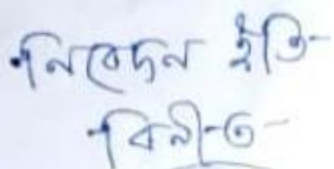 নিবেদন ইতি-
বিনীত-